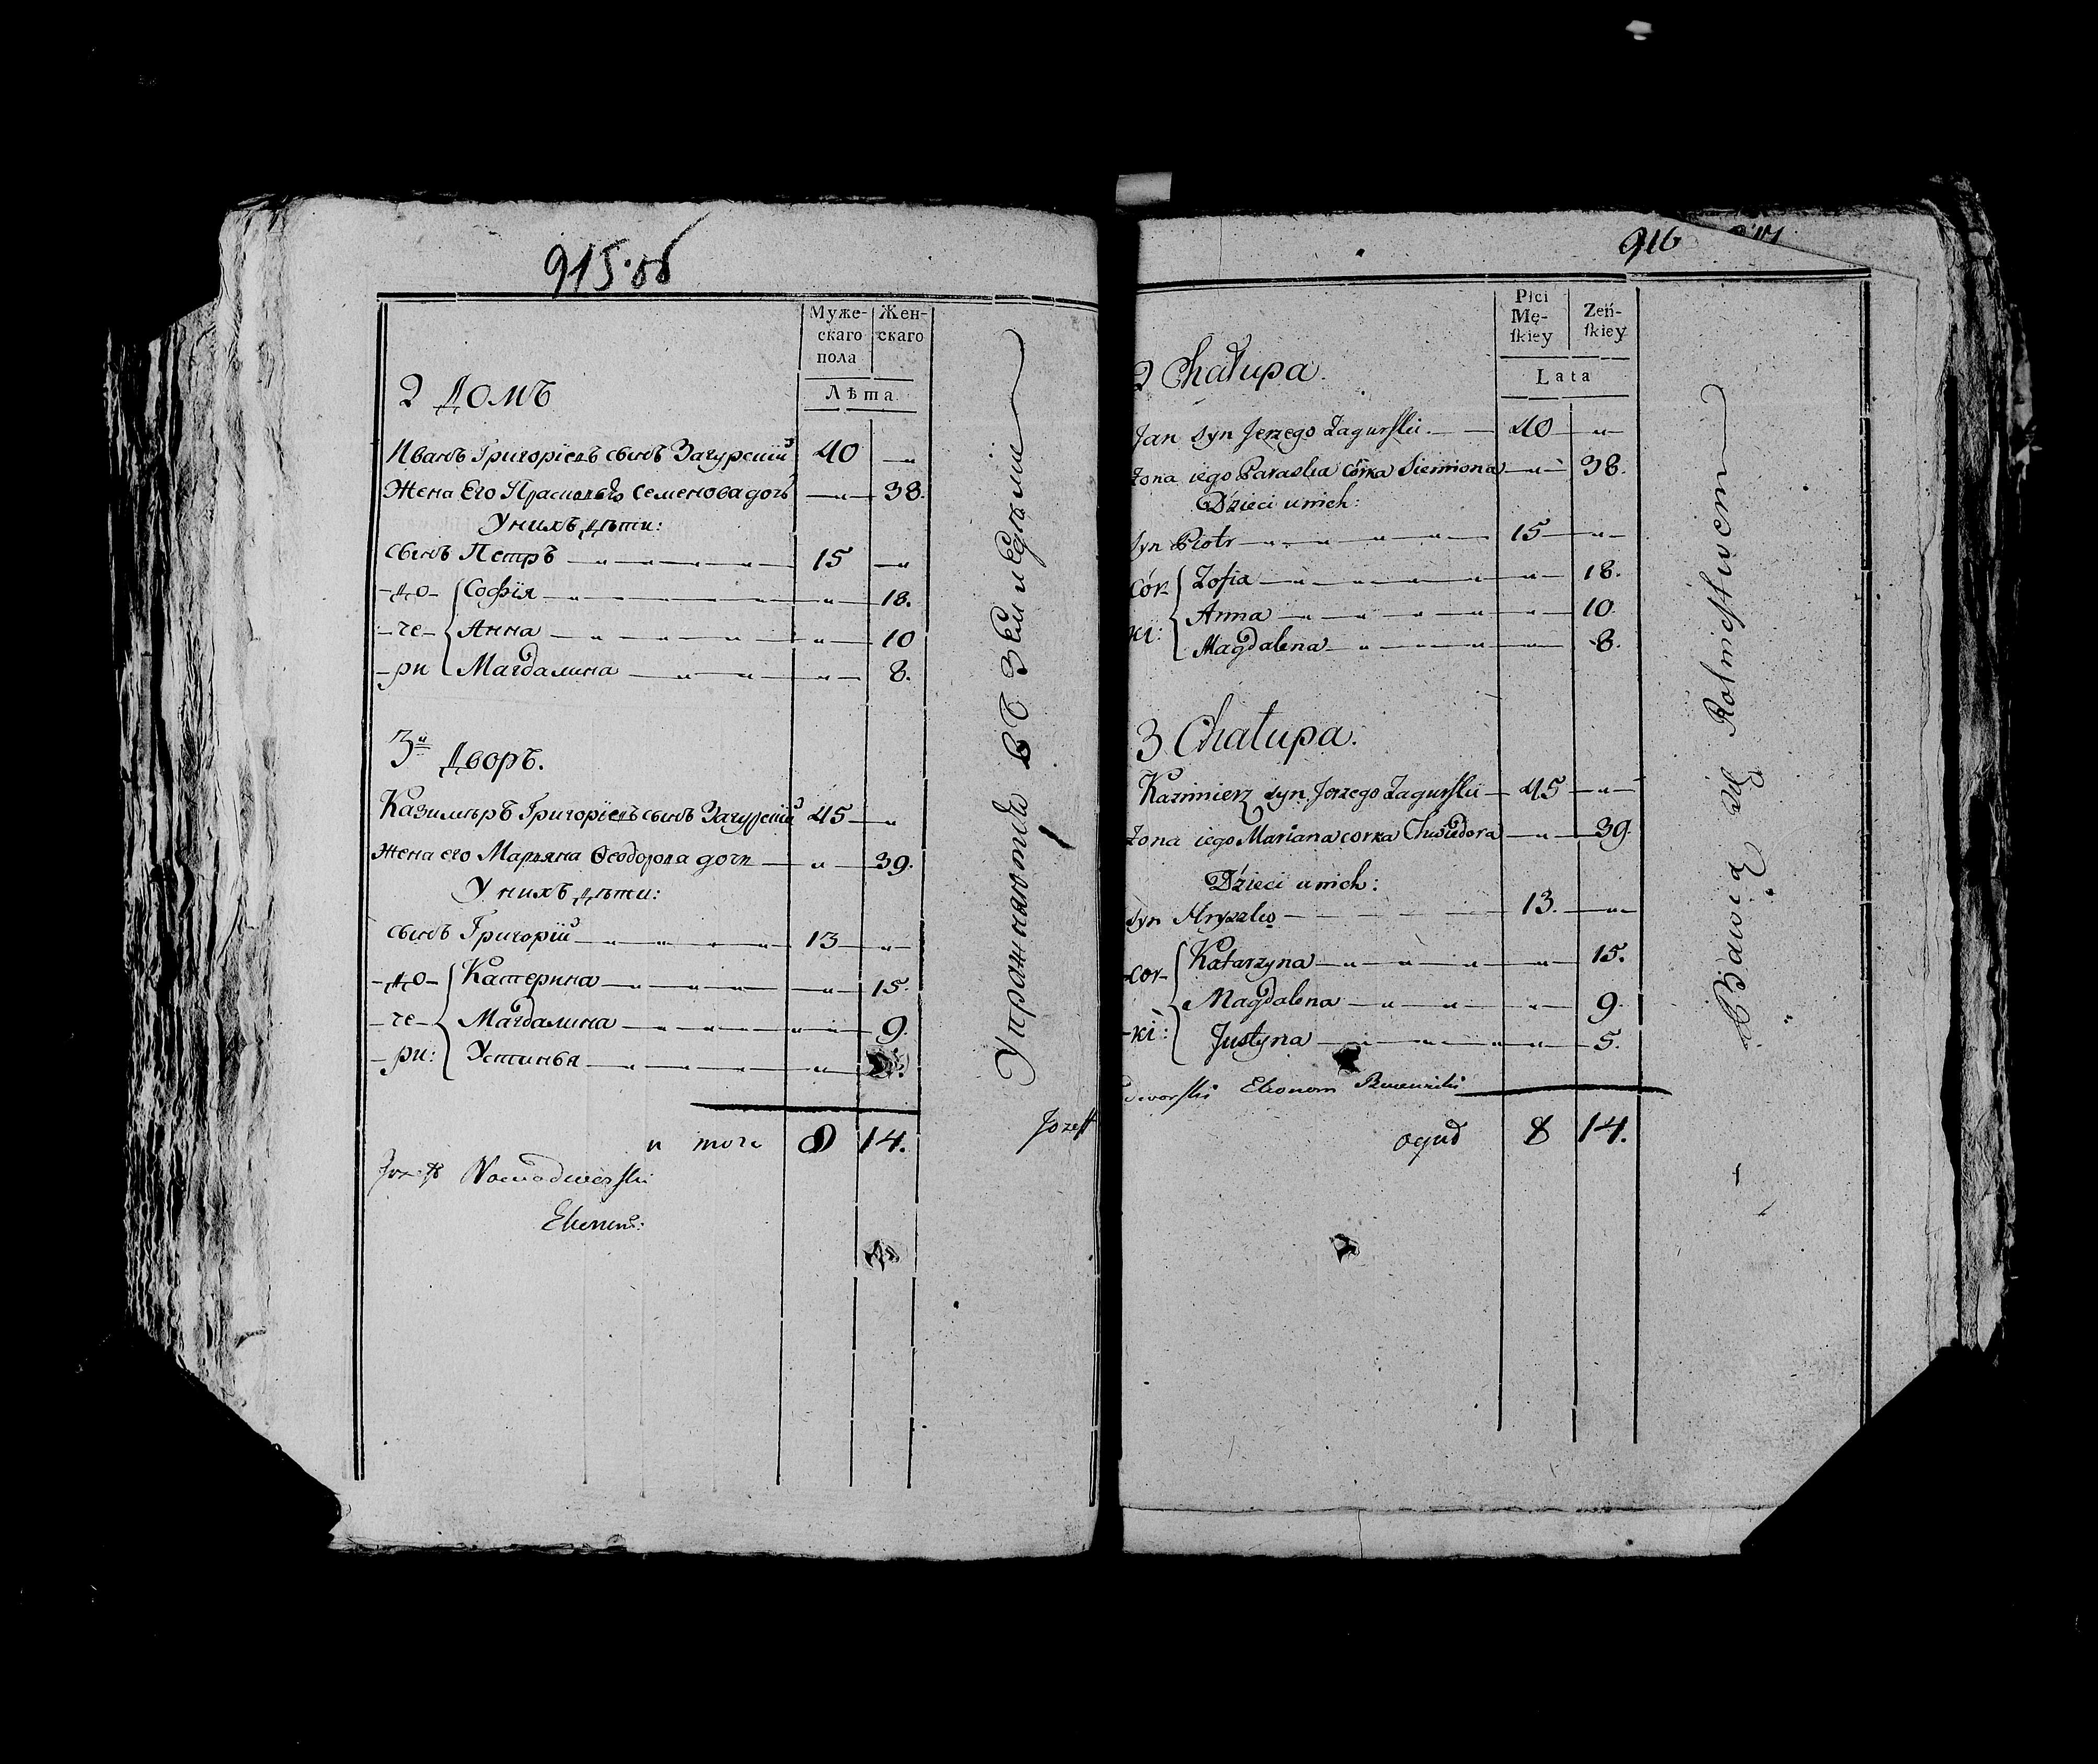 915 об
Муже-
скаго
пола
Жен-
скаго
Лѣта
2 Домъ
Иванъ Григорiевъ сынъ Загурскiй 40 —
Жена Его Прасковья Семенова дочь — 38.
У нихъ дѣти:
сынъ Петръ 15 —
-до- София 18.
-че- Анна 10
-ри Магдалина 8.
3й Дворъ.
Казимиръ Григорiевъ сынъ Загурскiй 45 —
Жена его Марьяна Ѳеодорова дочь — 39.
У нихъ дѣти:
сынъ Григорiй 13 —
-до- Катерина 15.
-че- Магдалина 9.
-ри: Устинья
итого 8 14.
Jozeff Nowodworski
Ekonom:
Упражняются въ Земледѣлiи
Jozeff
916
Płci
Mę-
skiey
Zeń-
skiey
Lata
2 Chałupa.
Jan syn Jerzego Zagurski 40 —
Zona iego Paraska Córka Siemiona — 38.
Dzieci u nich:
syn Piotr 15 —
cór- Zofia 18.
Anna 10
ki: Magdalena 8.
3 Chałupa.
Kazimierz syn Jerzego Zagurski 45 —
Zona iego Mariana corka Chwiedora — 39.
Dzieci u nich:
syn Hryszko 13. —
cor- Katarzyna 15.
Magdalena 9.
-ki: Justyna 5.
dworski Ekonom
ogud 8 14.
Bawią się Rolnictwem